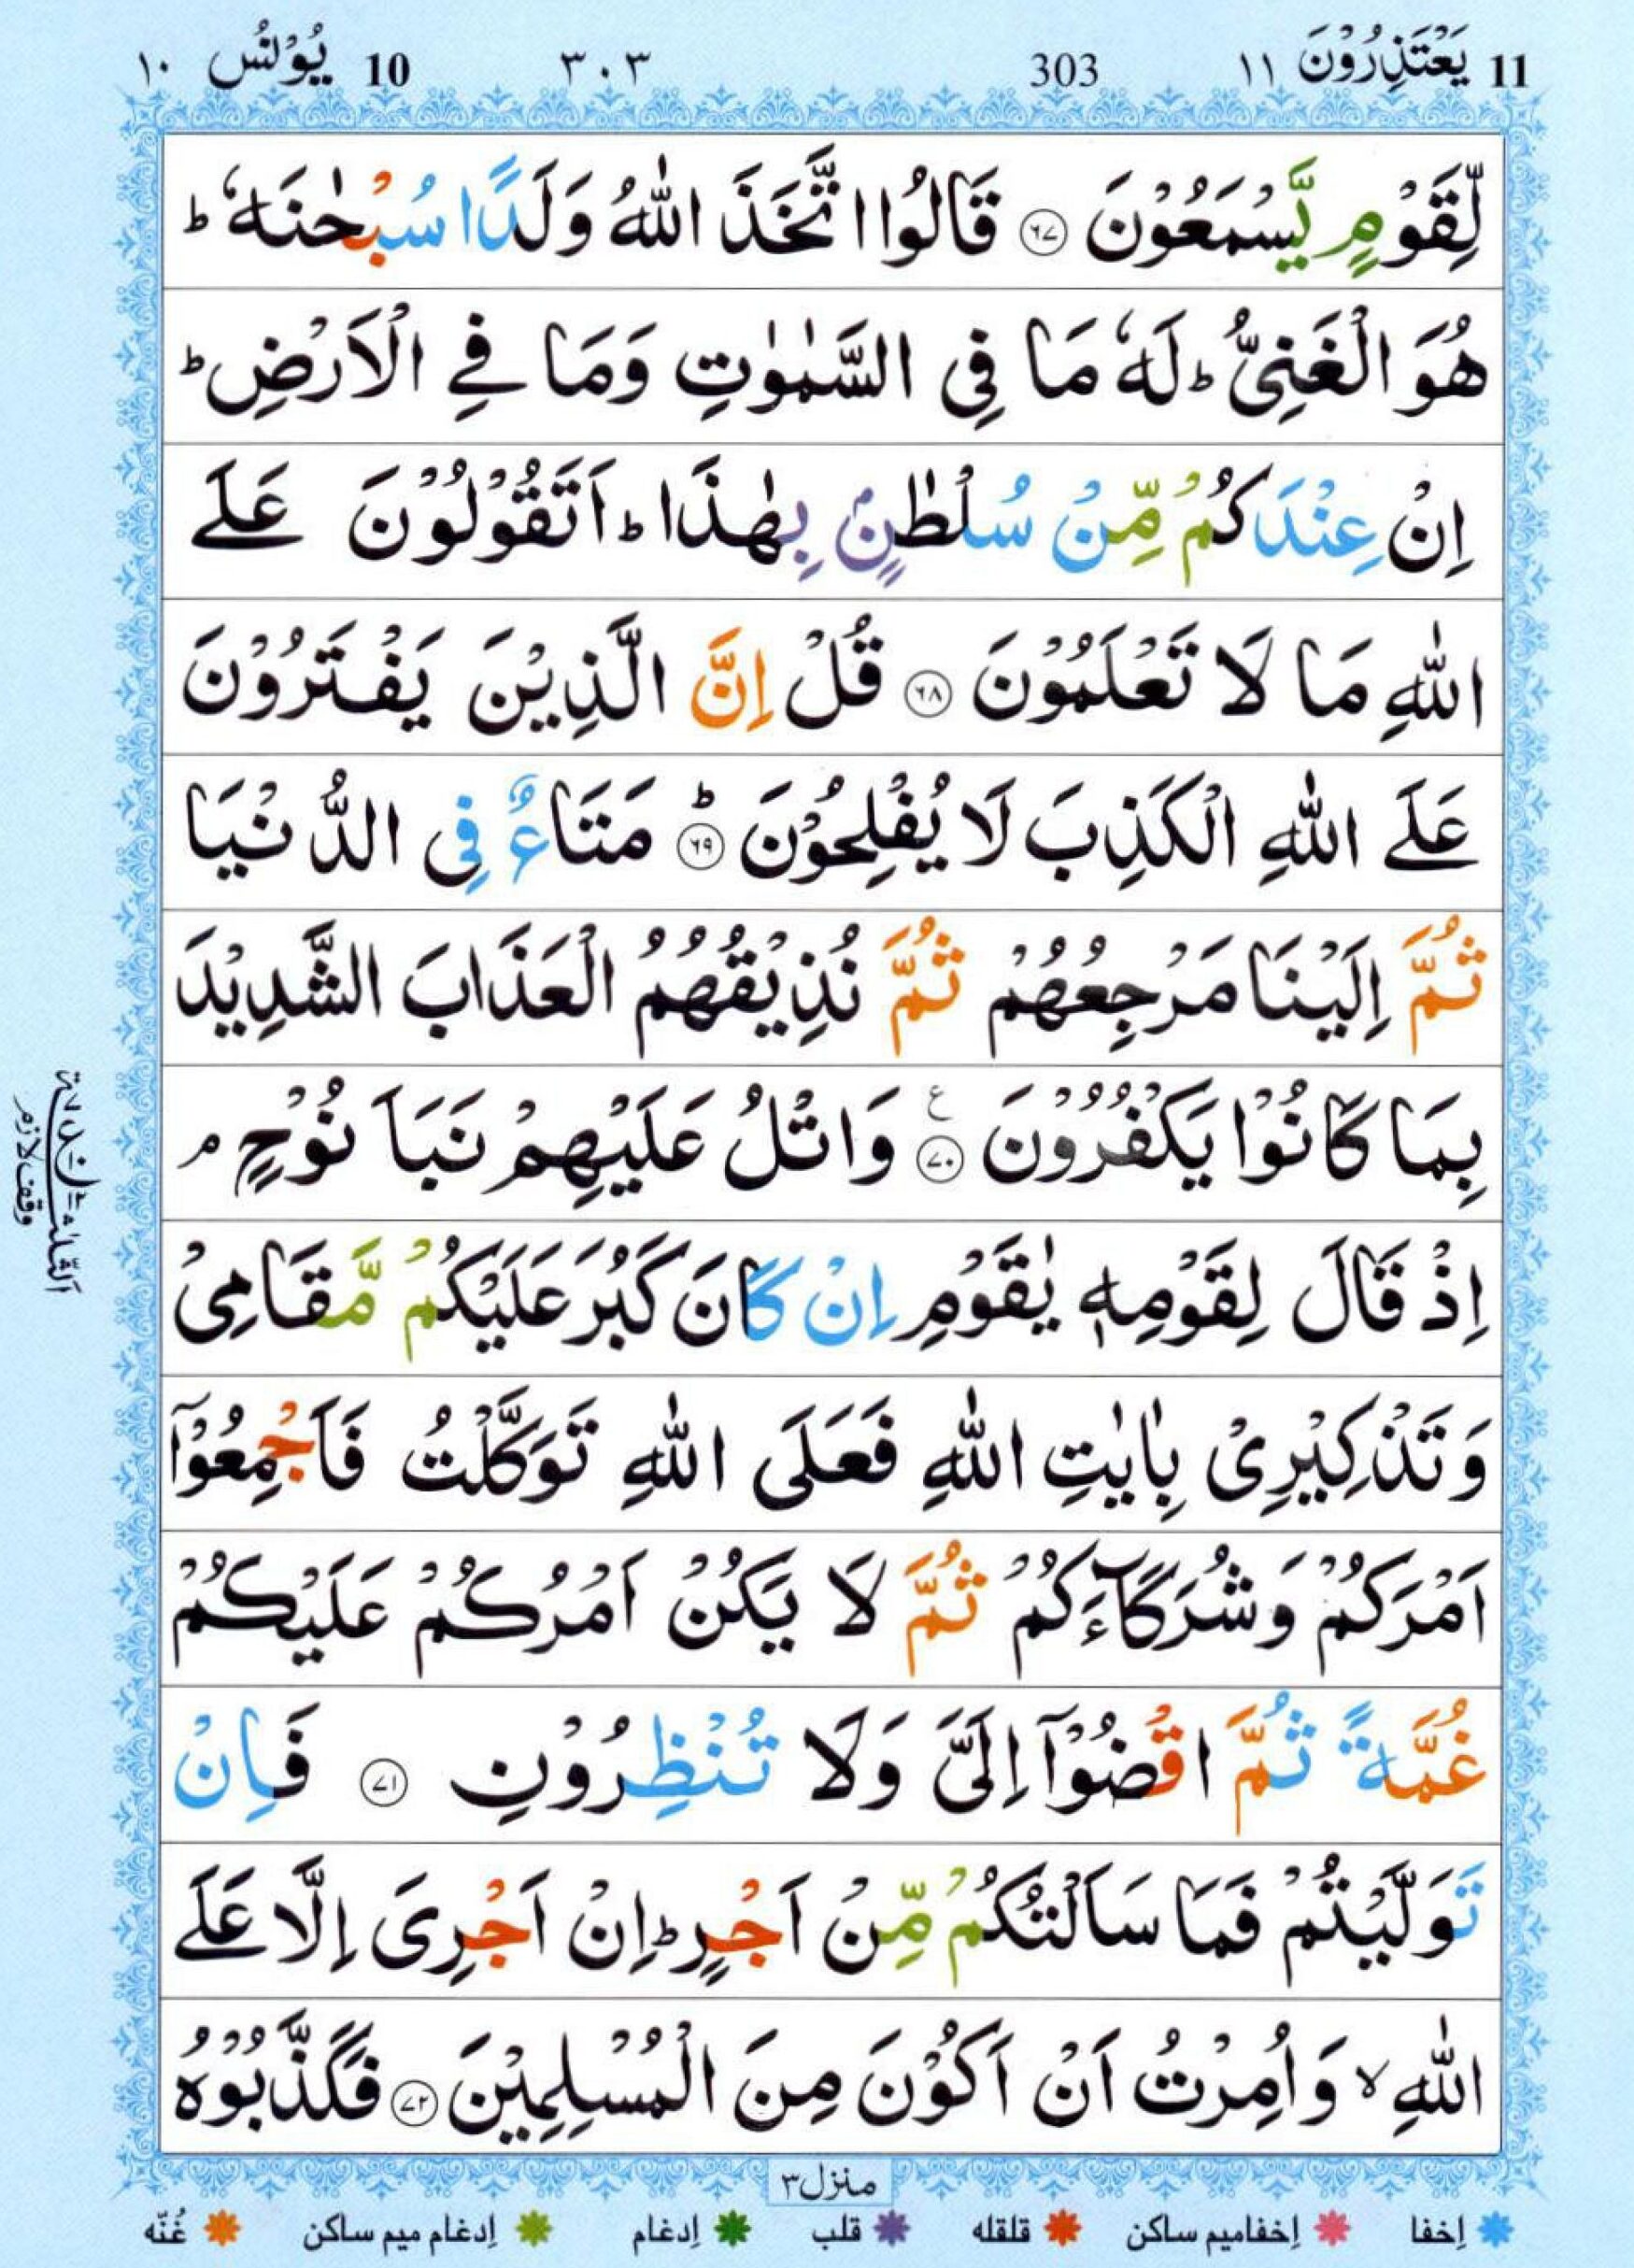 11 يَعْتَذِرُوْنَ ١١ 303 ٣٠٣ 10 يُوْنُسُ ١٠
لِّقَوْمٍ يَّسْمَعُوْنَ ﴿٦٧﴾ قَالُوا اتَّخَذَ اللّٰهُ وَلَدًا سُبْحٰنَهٗ ؕ
هُوَ الْغَنِىُّ ؕ لَهٗ مَا فِى السَّمٰوٰتِ وَمَا فِے الْاَرْضِ ؕ
اِنْ عِنْدَكُمْ مِّنْ سُلْطٰنٍۭ بِهٰذَا ؕ اَتَقُوْلُوْنَ عَلَے
اللّٰهِ مَا لَا تَعْلَمُوْنَ ﴿٦٨﴾ قُلْ اِنَّ الَّذِيْنَ يَفْتَرُوْنَ
عَلَے اللّٰهِ الْكَذِبَ لَا يُفْلِحُوْنَ ﴿٦٩﴾ؕ مَتَاعٌ فِى الدُّنْيَا
ثُمَّ اِلَيْنَا مَرْجِعُهُمْ ثُمَّ نُذِيْقُهُمُ الْعَذَابَ الشَّدِيْدَ
بِمَا كَانُوْا يَكْفُرُوْنَ ﴿٧٠﴾ ع وَاتْلُ عَلَيْهِمْ نَبَاَ نُوْحٍ ۘ
اِذْ قَالَ لِقَوْمِهٖ يٰقَوْمِ اِنْ كَانَ كَبُرَ عَلَيْكُمْ مَّقَامِىْ
وَتَذْكِيْرِىْ بِاٰيٰتِ اللّٰهِ فَعَلَى اللّٰهِ تَوَكَّلْتُ فَاَجْمِعُوْٓا
اَمْرَكُمْ وَشُرَكَآءَكُمْ ثُمَّ لَا يَكُنْ اَمْرُكُمْ عَلَيْكُمْ
غُمَّةً ثُمَّ اقْضُوْٓا اِلَىَّ وَلَا تُنْظِرُوْنِ ﴿٧١﴾ فَاِنْ
تَوَلَّيْتُمْ فَمَا سَاَلْتُكُمْ مِّنْ اَجْرٍ ؕ اِنْ اَجْرِىَ اِلَّا عَلَے
اللّٰهِ ۙ وَاُمِرْتُ اَنْ اَكُوْنَ مِنَ الْمُسْلِمِيْنَ ﴿٧٢﴾ فَكَذَّبُوْهُ
وقف لازم
منزل ٣
إخفا إخفاميم ساكن قلقله قلب إدغام إدغام ميم ساكن غُنّه